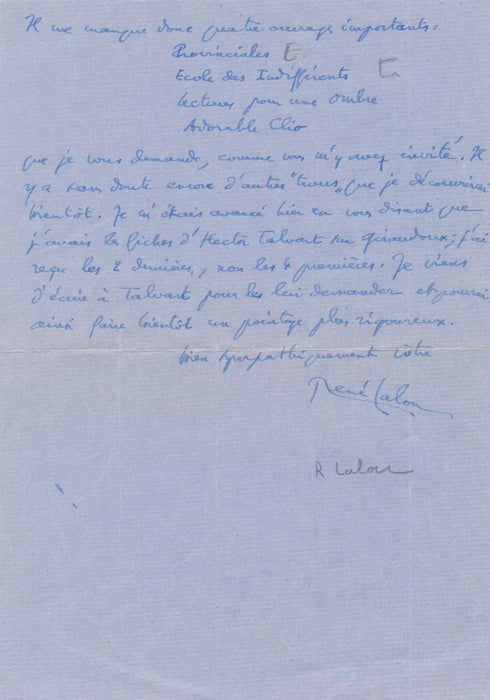 Il me manque donc quatre ouvrages importants :
Provinciales E.
Ecole des Indifférents E.
Lectures pour une Ombre
Adorable Clio
que je vous demande, comme vous m'y avez invité. Il
y a sans doute encore d'autres "trous" que je découvrirai
bientôt. Je m'étais avancé hier en vous disant que
j'avais les fiches d'Hector Talvart sur Giraudoux ; j'ai
reçu les 2 dernières, non les 4 premières. Je viens
d'écrire à Talvart pour les lui demander et pourrai
ainsi faire bientôt un pointage plus rigoureux.
bien sympathiquement vôtre
René Lalou
R Lalou